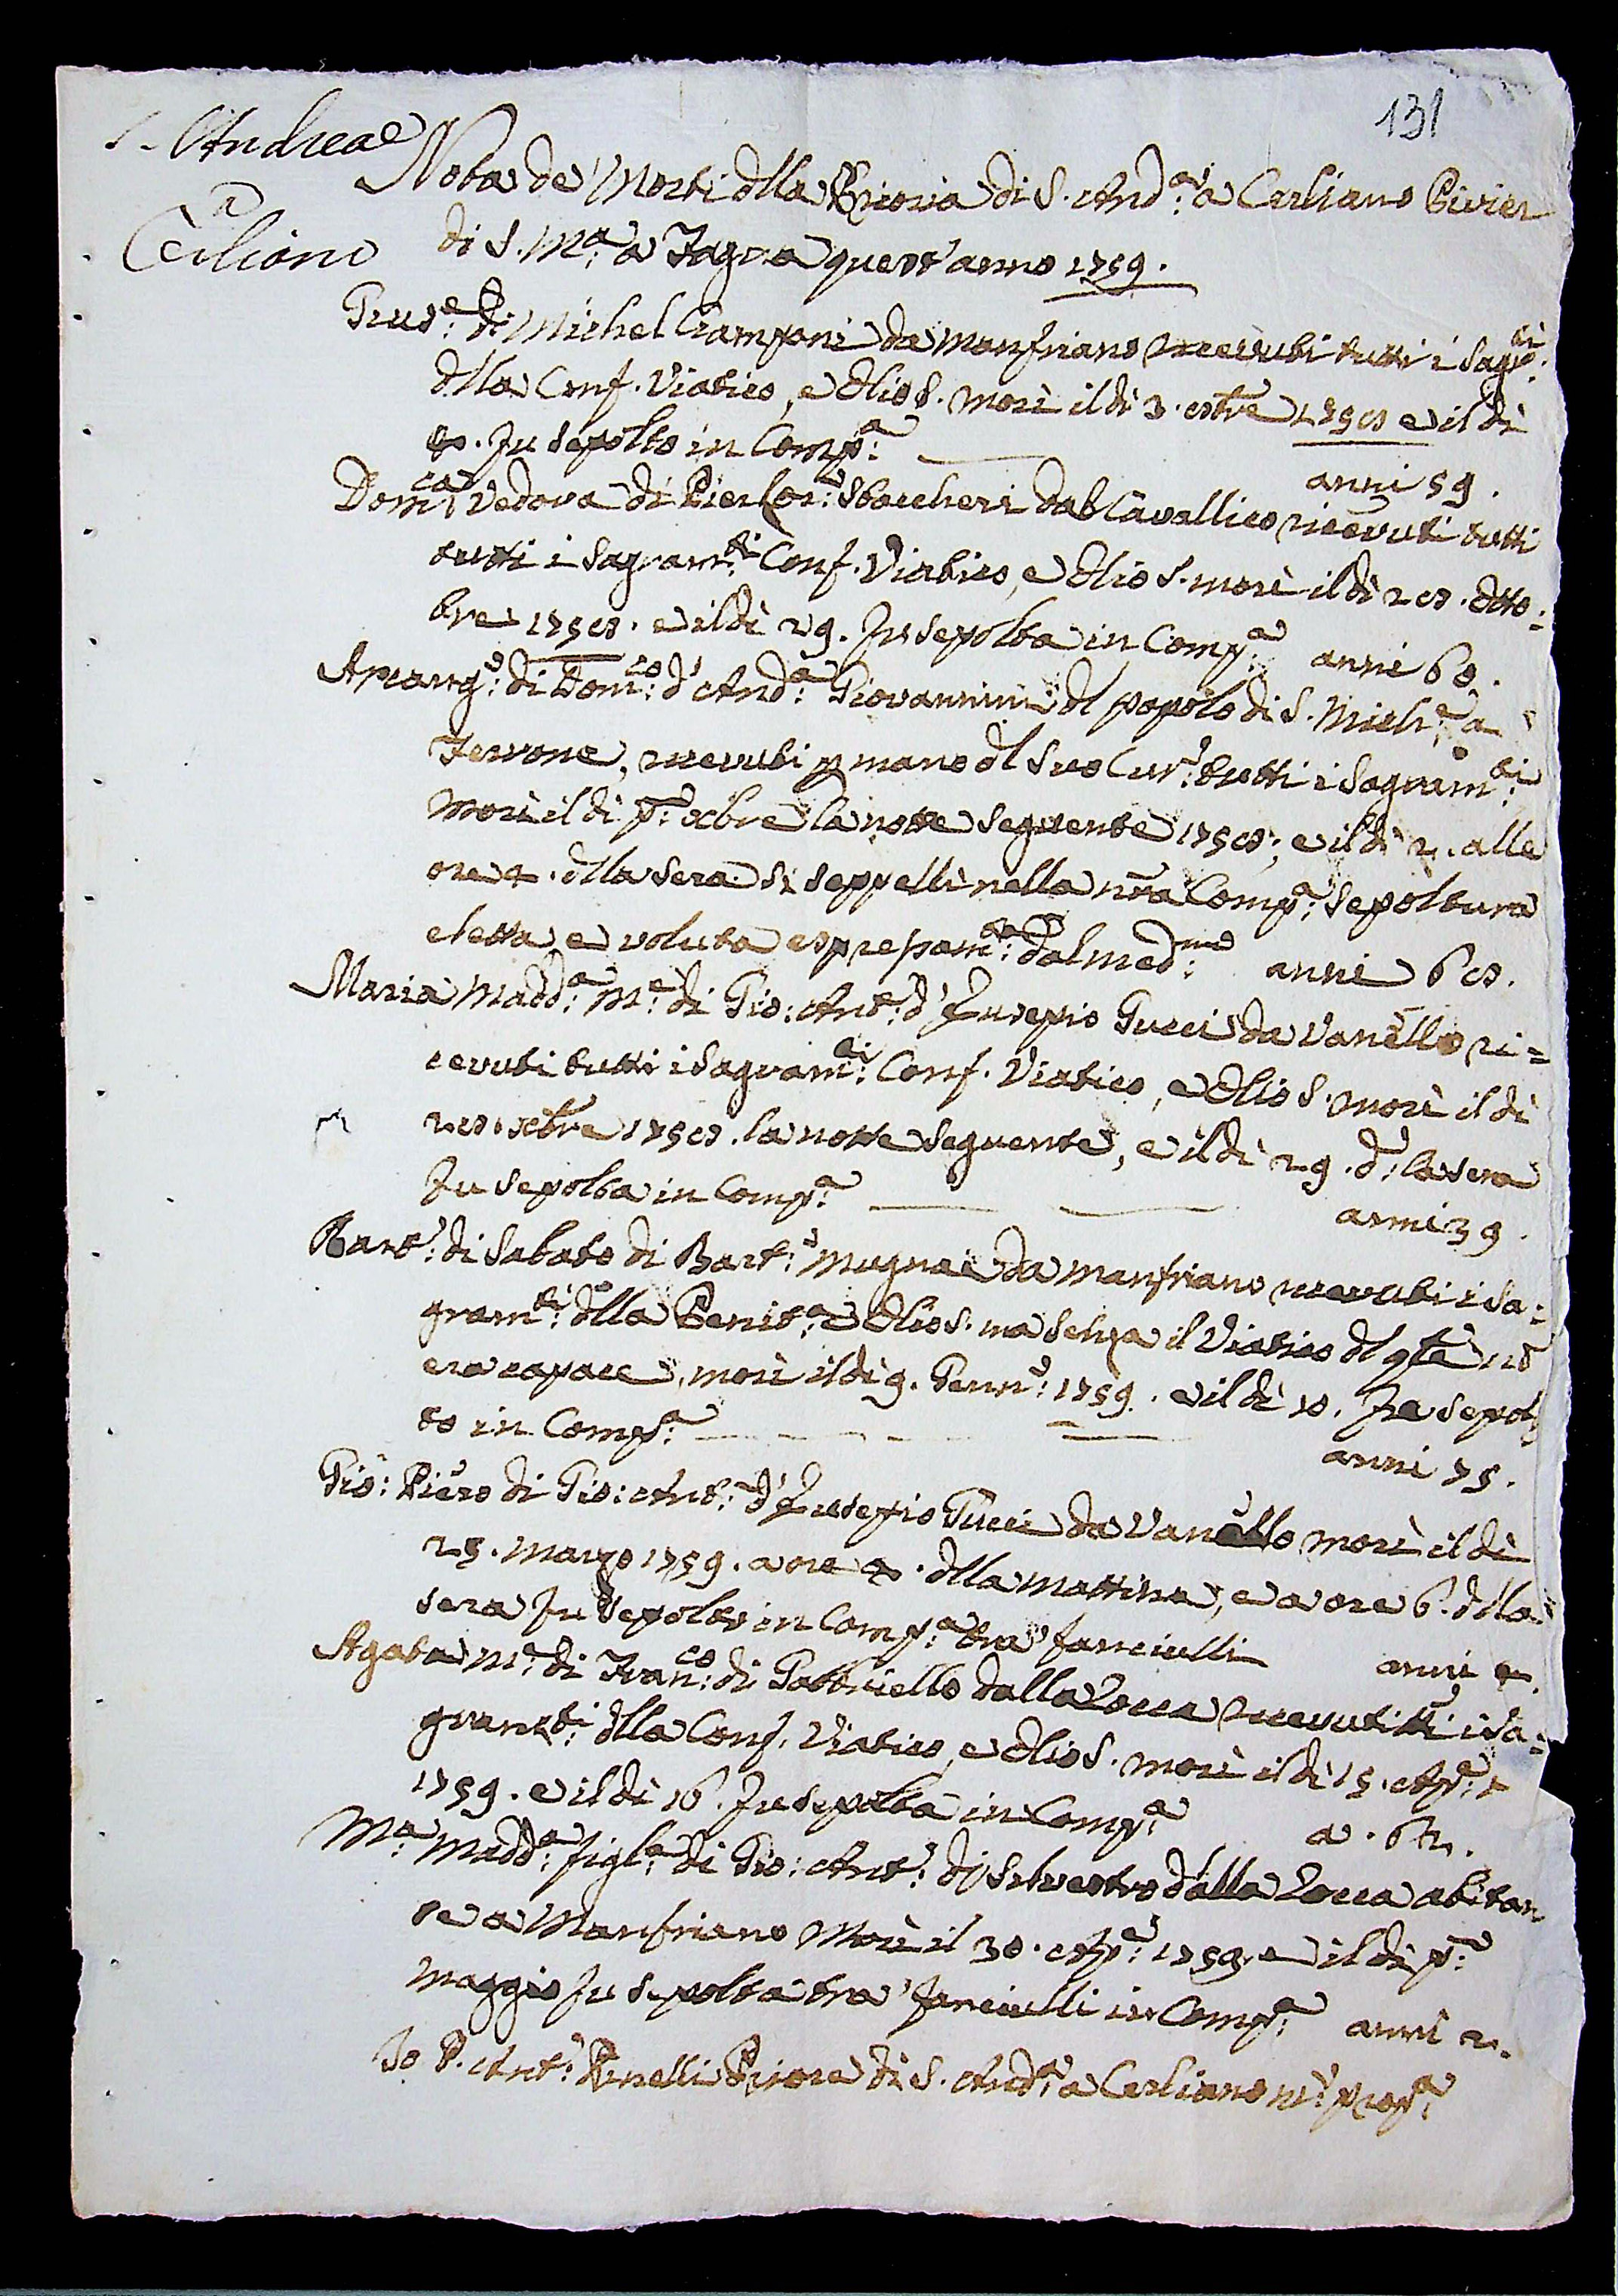 131
S. Andrea
a
Cerliano
Nota de' Morti dlla Prioria di S. And.a a Cerliano Pivier
di S. M.a a Fagna quest'anno 1759.
Gius.e di Michel Ciamponi da Monfriano ricevuti tutti i Sagr.ti
dlla Conf. Viatico, e Olio S. morì il dì 3. 8bre 1758 e il dì
4. fu sepolto in Comp.a anni 59.
Dom.ca Vedova di Pier Lor.o Sbaccheri dal Cavallico ricevuti tutti
tutti i Sagram.ti Conf. Viatico, e Olio S. morì il dì 28. Otto=
bre 1758. e il dì 29. fu sepolta in Comp.a anni 60.
Arcang.o di Dom.co d'And.a Giovannini dl popolo di S. Mich.e a
Ferrone, ricevuti p mano dl suo Cur.o tutti i Sagram.ti
Morì il dì p.o Xbre la notte seguente 1758; e il dì 2. alle
ore 4. dlla sera si seppellì nella nra Comp.a sepoltura
eletta, e voluta espressam.te dal med.mo anni 68.
Maria Madd.a M.e di Gio: Ant.o d'Giuseppio Gucci da Vanello ri=
cevuti tutti i Sagram.ti Conf. Viatico, e Olio S. morì il dì
28. Xbre 1758. la notte seguente, e il dì 29. d.o la sera
fu sepolta in Comp.a anni 39.
Bart.o di Sabato di Bart.o Mugnai da Manfriano ricevuti i Sa=
gram.ti dlla Penit.a e Olio S. ma senza il Viatico dl qle nō
era capace, morì il dì 9. Genn.o 1759. e il dì 10. fu sepol
to in Comp.a anni 75.
Gio: Piero di Gio: Ant.o d'Giuseppio Gucci da Vanello morì il dì
25. Marzo 1759. a ore 4. dlla mattina, e a ore 6. dlla
sera fu sepolto in Comp.a tra' fanciulli anni
Agata M.e di Fran.co di Gabbriello dalla Rocca ricevuti tti i Sa=
gram.ti dlla Conf. Viatico, e Olio S. morì il dì 15. Ap.e
1759. e il dì 16. fu sepolta in Comp.a a. 62.
M.a Madd.a figl.a di Gio: Ant.o di Silvestro dalla Rocca abitan
te a Manfriano Morì il 30. Ap.e 1759. e il dì p.o
Maggio fu sepolta tra' fanciulli in Comp.a anni 2.
Io P. Ant.o Pinelli Priore di S. And.a a Cerliano m.o prop.a